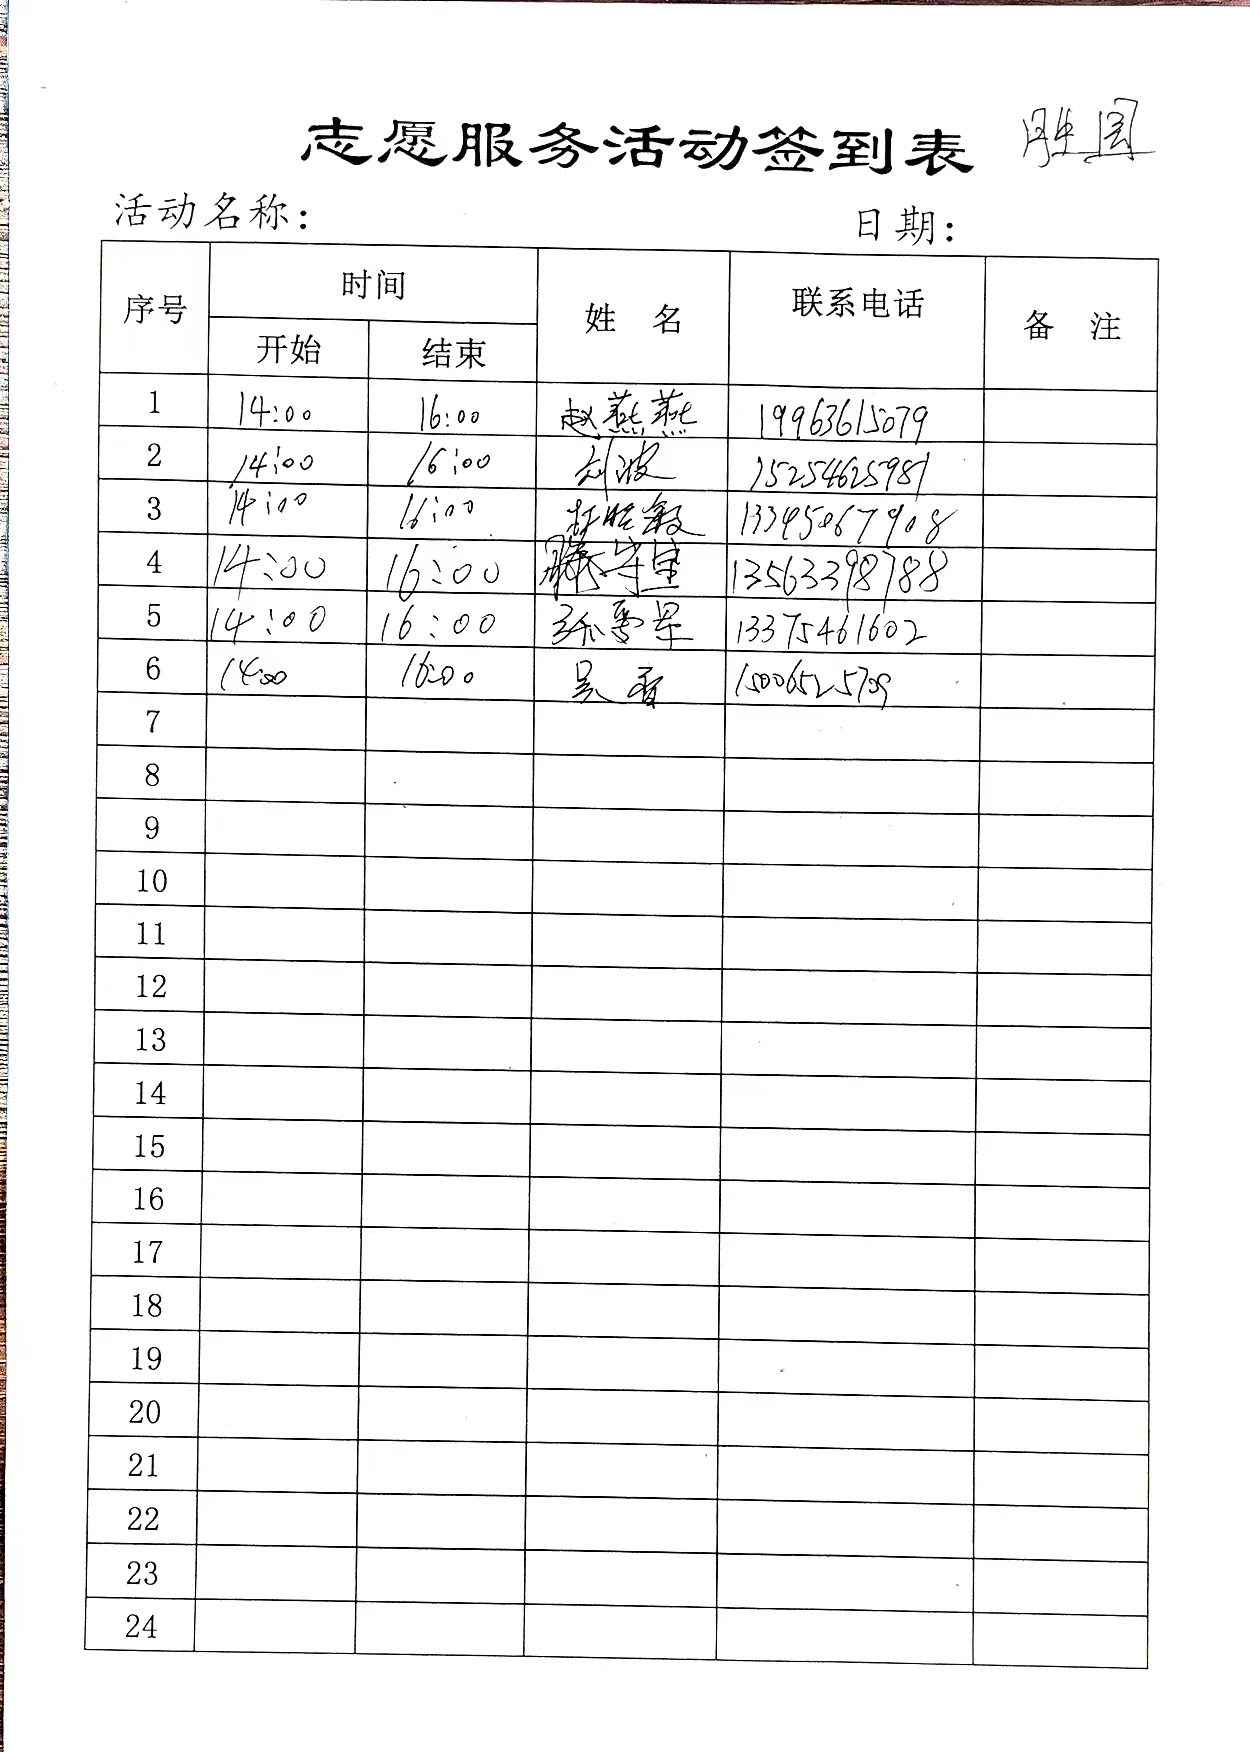 志愿服务活动签到表 胜园
活动名称： 日期：
序号 时间 姓 名 联系电话 备 注
开始 结束
1 14:00 16:00 赵燕燕 19963615079
2 14:00 16:00 刘波 15254625981
3 14:00 16:00 13345067908
4 14:00 16:00 13563398788
5 14:00 16:00 13375461602
6 14:00 16:00 吴香 15006525709
7
8
9
10
11
12
13
14
15
16
17
18
19
20
21
22
23
24